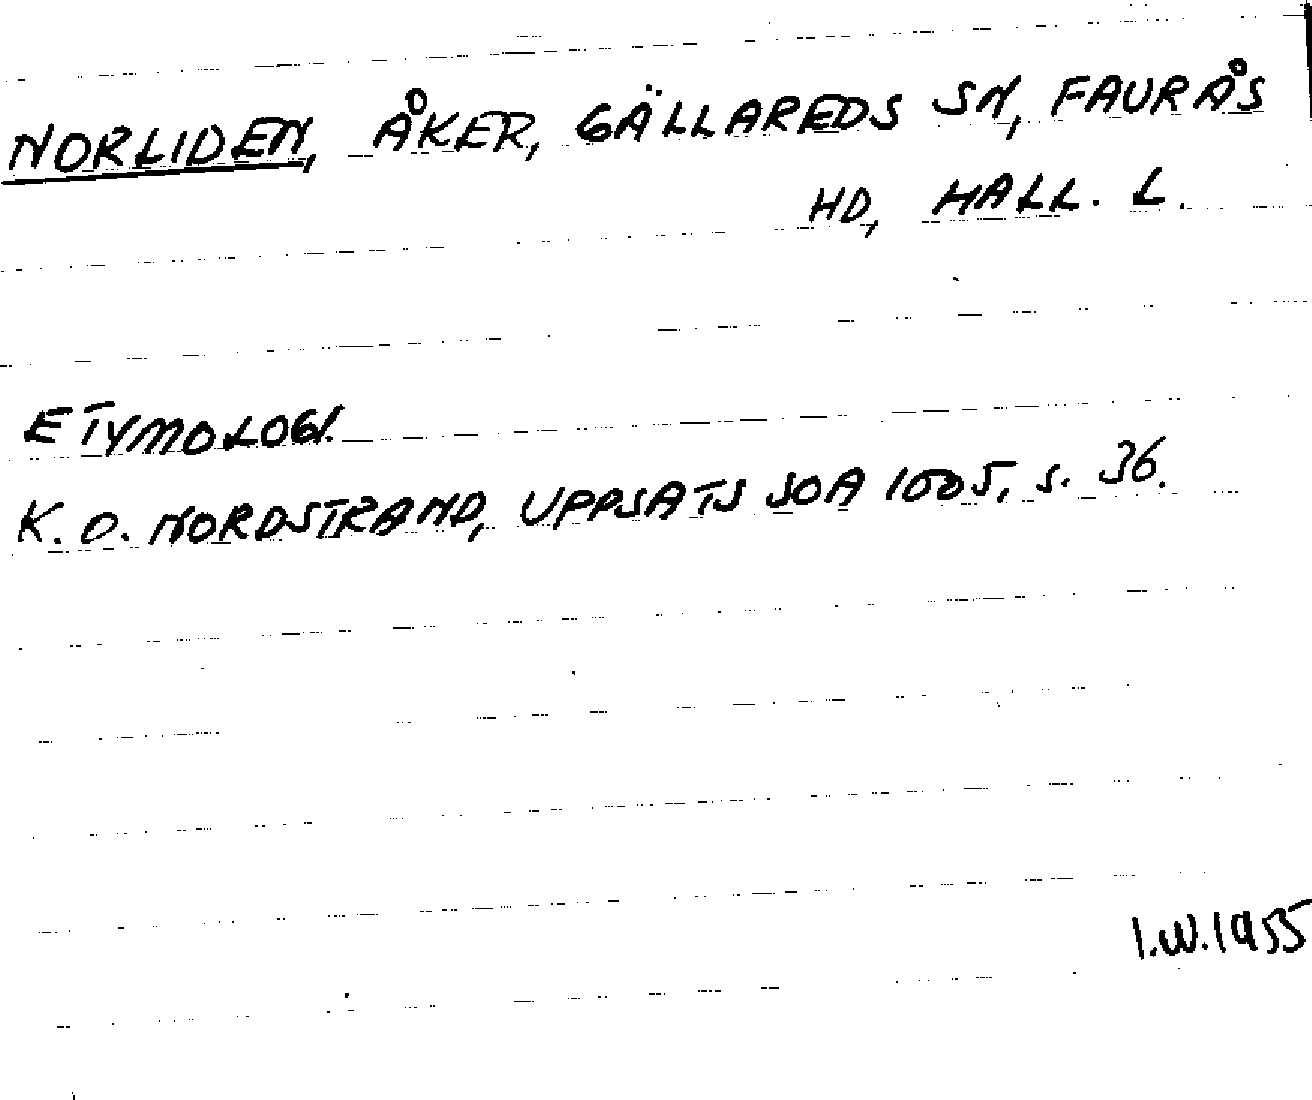 NORLIDEN, ÅKER, GÄLLAREDS SN, FAURÅS
HD, HALL. L.
ETYMOLOGI.
K. O. NORDSTRAND, UPPSATS SOA 1005, s. 36.
I.W.1955